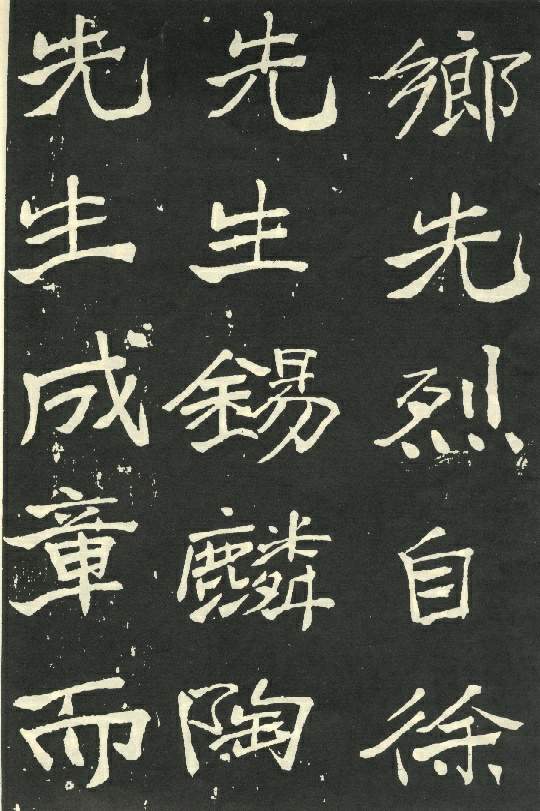 鄉先烈自徐
先生錫麟陶
先生成章而